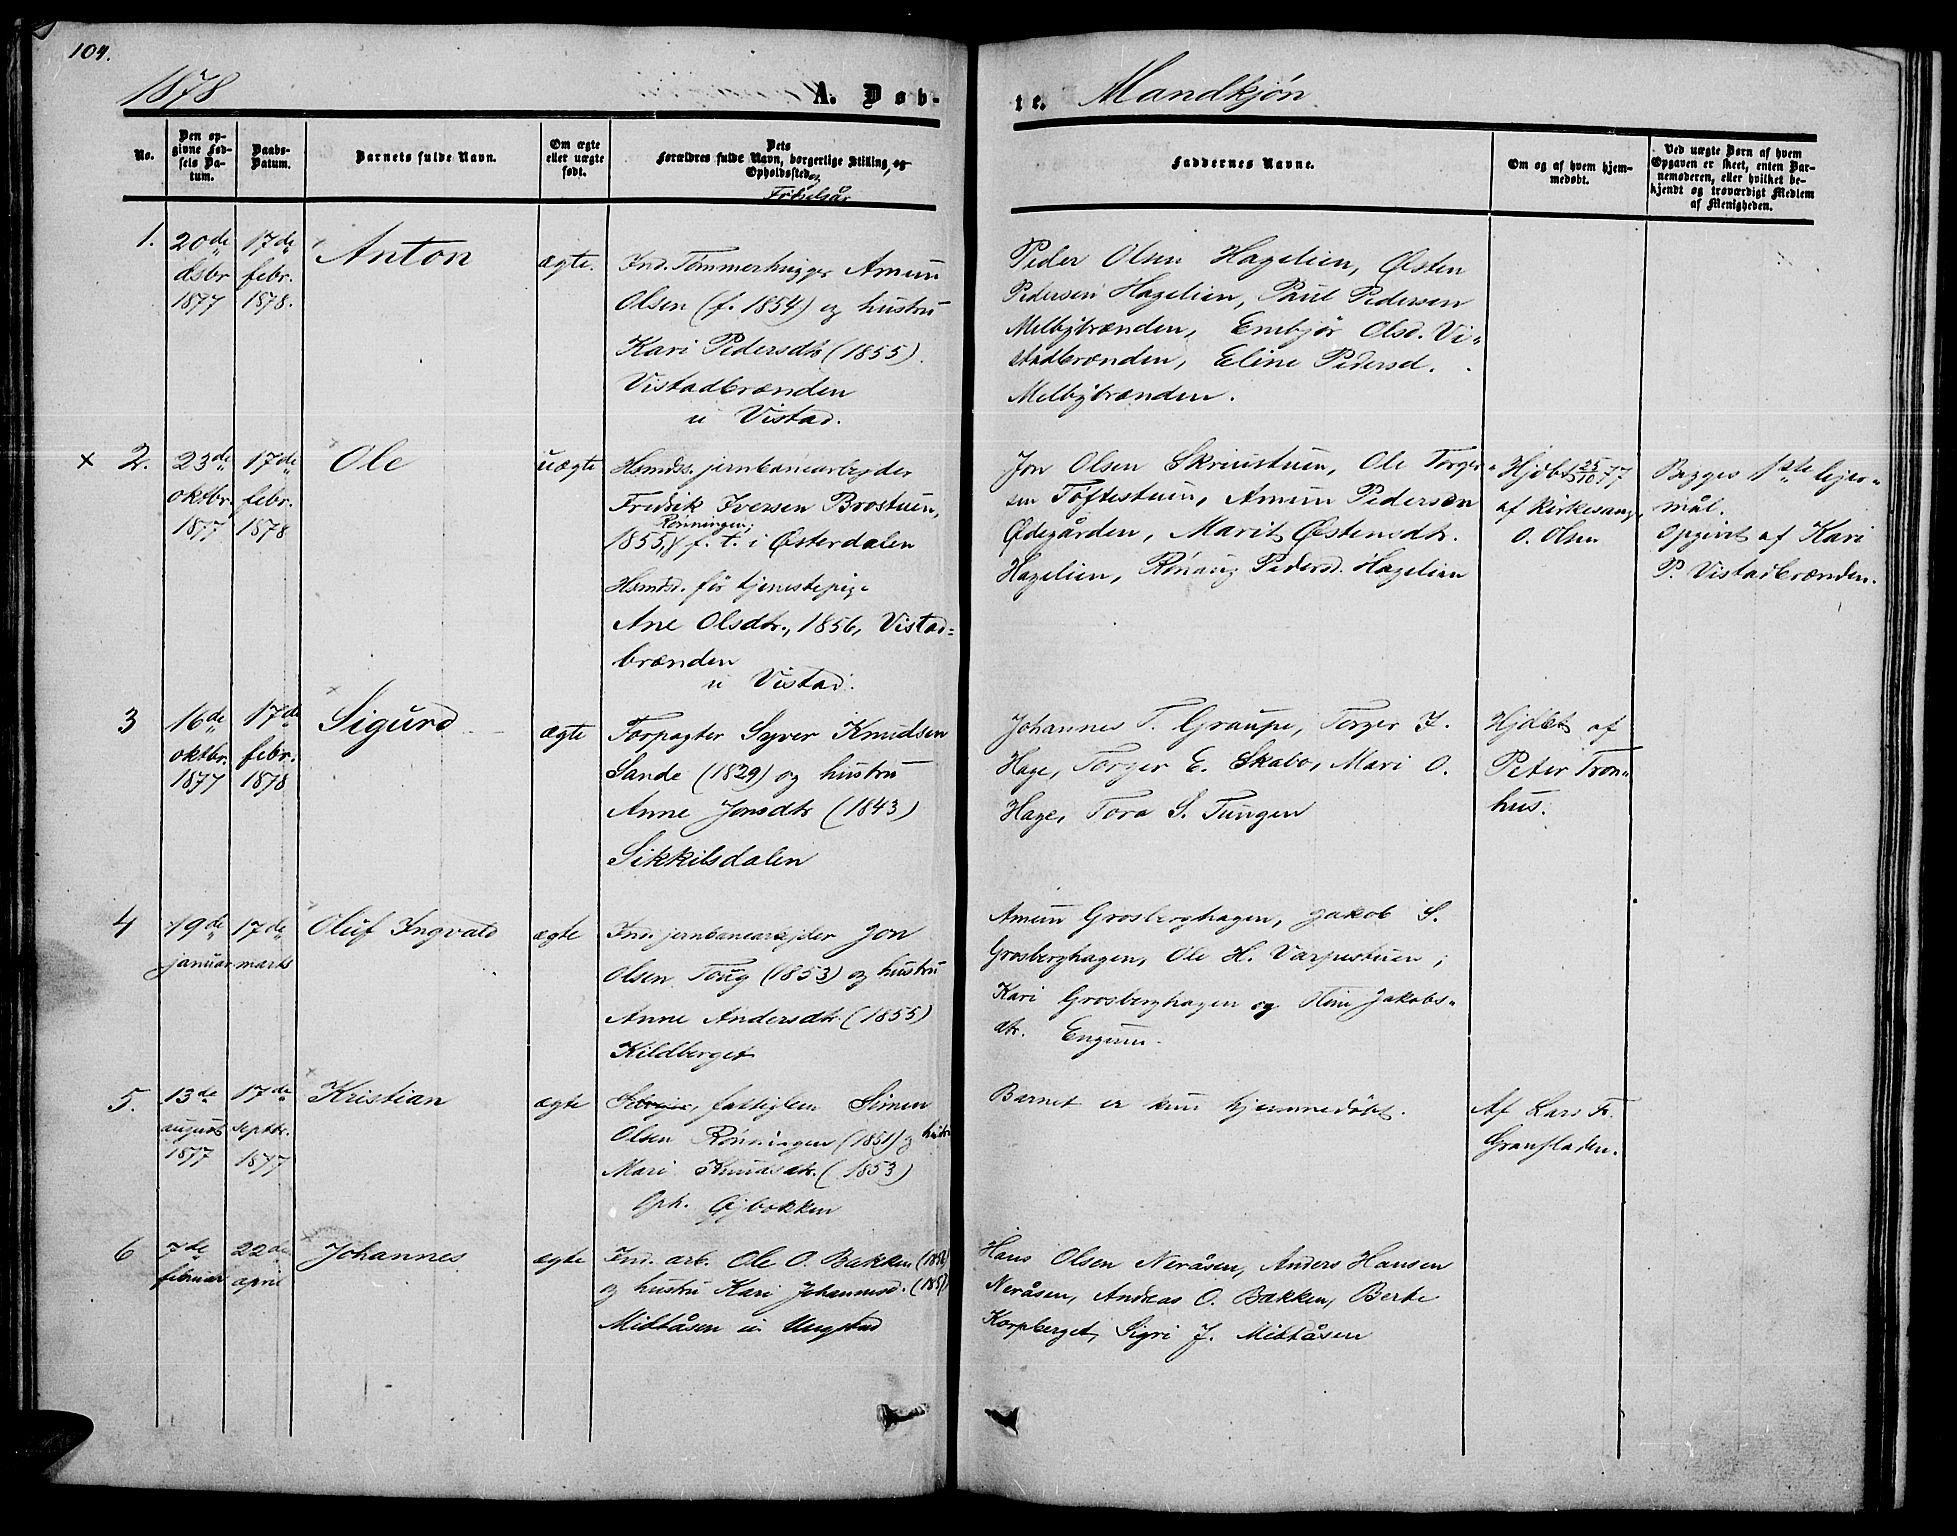 104.
1878
A. Døb-
te. Mandkjøn
No.
Den op-
givne Fød-
sels Da-
tum.
Daabs-
Datum.
Barnets fulde Navn.
Om ægte
eller uægte
født.
Dets
Forældres fulde Navn, borgerlige Stilling, og
Opholdssted
Fødselsår
Faddernes Navne.
Om og af hvem hjem-
medøbt.
Ved uægte Børn af hvem
Opgaven er skeet, enten Bar-
nemoderen, eller hvilket be-
kjendt og troværdigt Medlem
af Menigheden.
1.
20de
dsbr
1877
17de
febr.
1878.
Anton
ægte.
Ind. Tømmerhugger Amun
Olsen (f. 1854) og hustru
Kari Pedersdtr (1855).
Vistadbrænden
u Vistad.
Peder Olsen Hagelien, Østen
Pedersen Hagelien, Paul Pedersen
Melbybrænden, Embjør Olsd. Vi-
stadbrænden, Eline Pedersd.
Melbybrænden.
× 2.
23de
oktbr.
1877
17de
febr.
1878
Ole
uægte
Hsmdss. jernbanearbejder
Fredrik Iversen Brostuen,
Rønningen;
1855, f. t. i Østerdalen
Hsmdd. før tjenestepige
Ane Olsdtr., 1856, Vistad-
brænden
u Vistad.
Jon Olsen Skriustuen, Ole Torger-
sen Tøftestuen, Amun Pedersen
Ødegården, Marit Østensdtr.
Hagelien, Rønaug Pedersd. Hagelien
Hjdbt 25/10 77
af Kirkesang.
O. Olsen
Begges 1ste lejer-
mål.
Opgivet af Kari
P. Vistadbrænden.
3
16de
oktbr.
1877
17de
febr.
1878
Sigurd
ægte
Forpagter Syver Knudsen
Sande (1829) og hustru
Anne Jonsdtr (1843)
Sikkilsdalen
Johannes T. Graupe, Torger I.
Hage, Torger E. Skabo, Mari O.
Hage, Tora S. Tungen
Hjdbt af
Peter Tron-
hus.
4
19de
januar
17de
marts
Oluf Ingvald
ægte
Ind. jernbanearbejder Jon
Olsen Toug (1853) og hustru
Anne Andersdtr. (1855)
Kildberget
Amun Grosberghagen, Jakob S.
Grosberghagen, Ole H. Varpestuen,
Kari Grosberghagen og Stine Jakobs-
dtr. Engum.
5.
13de
august
1877
17de
septbr.
1877
Kristian
ægte
fattiglem Simen
Olsen Rønningen (1851) og hustru
Mari Knudsdtr. (1853)
Oph. Gjbakken
Barnet er kun hjemmedøbt.
Af Lars Fr.
Granfladen.
6
7de
februar
22de
april
Johannes
ægte
Ind. arb. Ole O. Bakken
og hustru Kari Johannesd.
Midtåsen u. Ungstad
Hans Olsen Neråsen, Anders Hansen
Neråsen, Andreas O. Bakken, Berte
Korpberget, Sigri J. Midtåsen